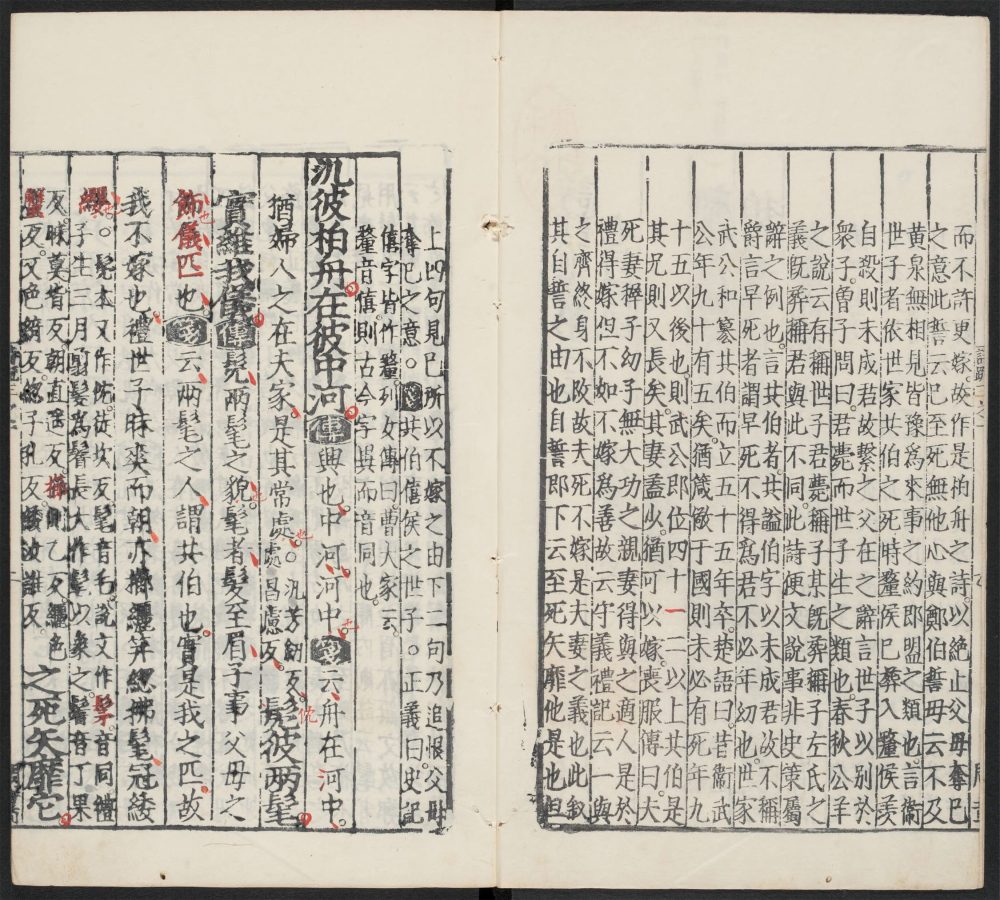 而不許更嫁故作是柏舟之詩以絕止父母奪己
之意此誓云己至死無他心與鄭伯誓母云不及
黃泉無相見皆豫為來事之約即盟之類也言衞
世子者依世家共伯之死時釐侯已葬入釐侯羨
自殺則未成君故繫之父在之辭言世子以別於
衆子曾子問曰君薨而世子生之類也春秋公羊
之說云存稱世子君薨稱子某旣葬稱子左氏之
義旣葬稱君與此不同此詩便文說事非史策屬
辭之例也言共伯者共謚伯字以未成君故不稱
爵言早死者謂早死不得爲君不必年幼也世家
武公和簒共伯而立五十五年卒楚語曰昔衞武
公年九十有五矣猶箴儆于國則未必有死年九
十五以後也則武公即位四十一二以上共伯是
其兄則又長矣其妻蓋少猶可以嫁喪服傳曰夫
死妻穉子幼子無大功之親妻得與之適人是於
禮得嫁但不如不嫁為善故云守義禮記云一與
之齊終身不改故夫死不嫁是夫妻之義也此敘
其自誓之由也自誓即下云至死矢靡他是也但
上四句見己所以不嫁之由下二句乃追恨父母
奪己之意。共伯僖侯之世子。正義曰史記
僖字皆作釐列女傳曰曹大家云
釐音僖則古今字異而音同也
汎彼柏舟在彼中河傳興也中河河中箋云舟在河中
猶婦人之在夫家是其常處。汎芳劒反處昌慮反髧彼兩髦
實維我儀傳髧兩髦之貌髦者髮至眉子事父母之
飾儀匹也箋云兩髦之人謂共伯也實是我之匹故
我不嫁也禮世子昧爽而朝亦櫛纚笄緫拂髦冠緌
纓。髧本又作忱徒坎反髦音毛說文作髳音同禮
子生三月剪髮為鬌長大作髦以象之鬌音丁果
反昧莫背反朝直遙反櫛側乙反纚色
蟹反又色綺反緫子孔反緌汝誰反 之死矢靡它